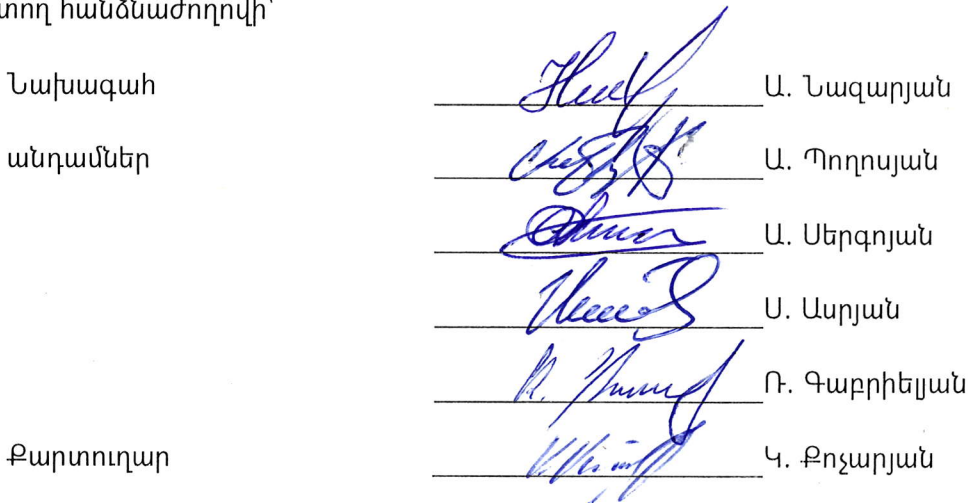 տող հանձնաժողովի՝
Նախագահ Ա. Նազարյան
անդամներ Ա. Պողոսյան
Ա. Սերգոյան
Ս. Ասրյան
Ռ. Գաբրիելյան
Քարտուղար Կ. Քոչարյան